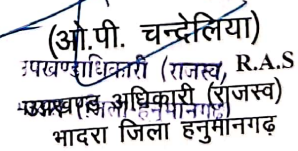 (ओ.पी. चन्देलिया)
उपखण्डाधिकारी (राजस्व, R.A.S
उपखण्ड अधिकारी (राजस्व)
भादरा जिला हनुमानगढ़